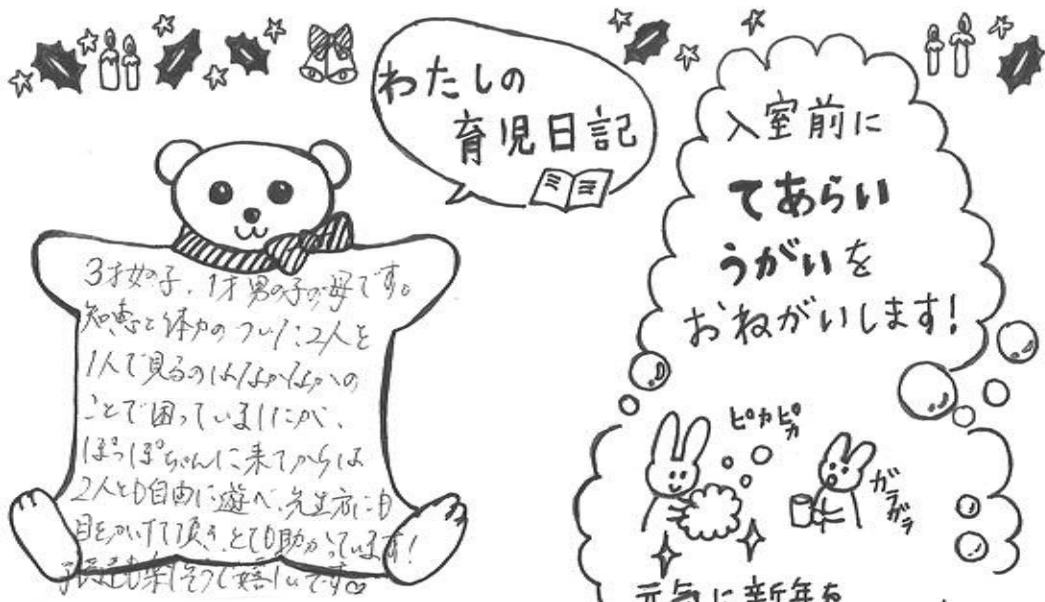 わたしの
育児日記
3才女の子、1才男の子の母です。
知恵と体力のついた2人を
1人で見るのはなかなかの
ことで困っていましたが、
ぽっぽちゃんに来てからは
2人とも自由に遊べ、先生方にも
目をかけて頂き、とても助かっています!
子供達も楽しそうで嬉しいです♡
入室前に
てあらい
うがいを
おねがいします!
ピカピカ
ガラガラ
元気に新年を